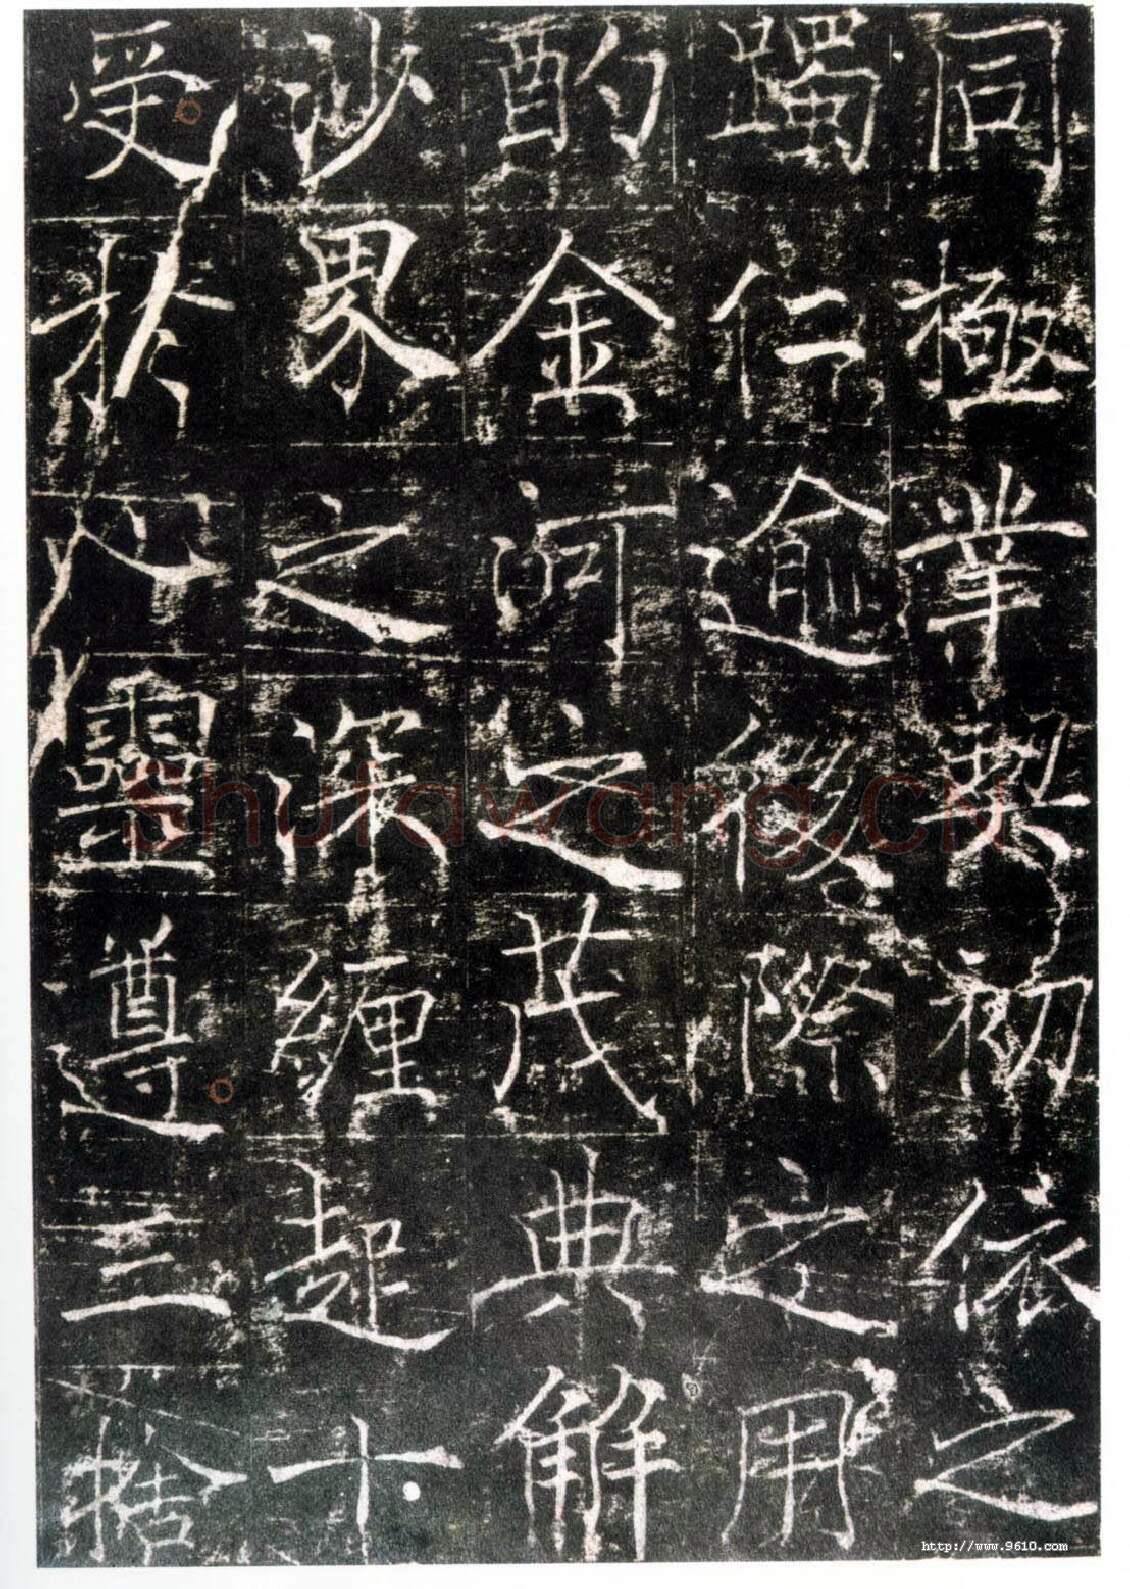 同極華契初依之
躅仁逾後際之用
酌金河之茂典解
沙界之深纏起十
受於八靈遵三格
Shufawang.CN
http://www.9610.com